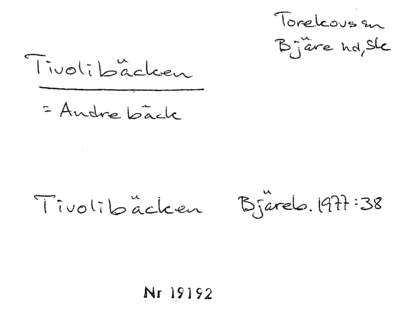 Torekovs sn
Bjäre hd, Sk
Tivolibäcken
= Andrebäck
Tivolibäcken Bjäreb. 1977:38
Nr 19192